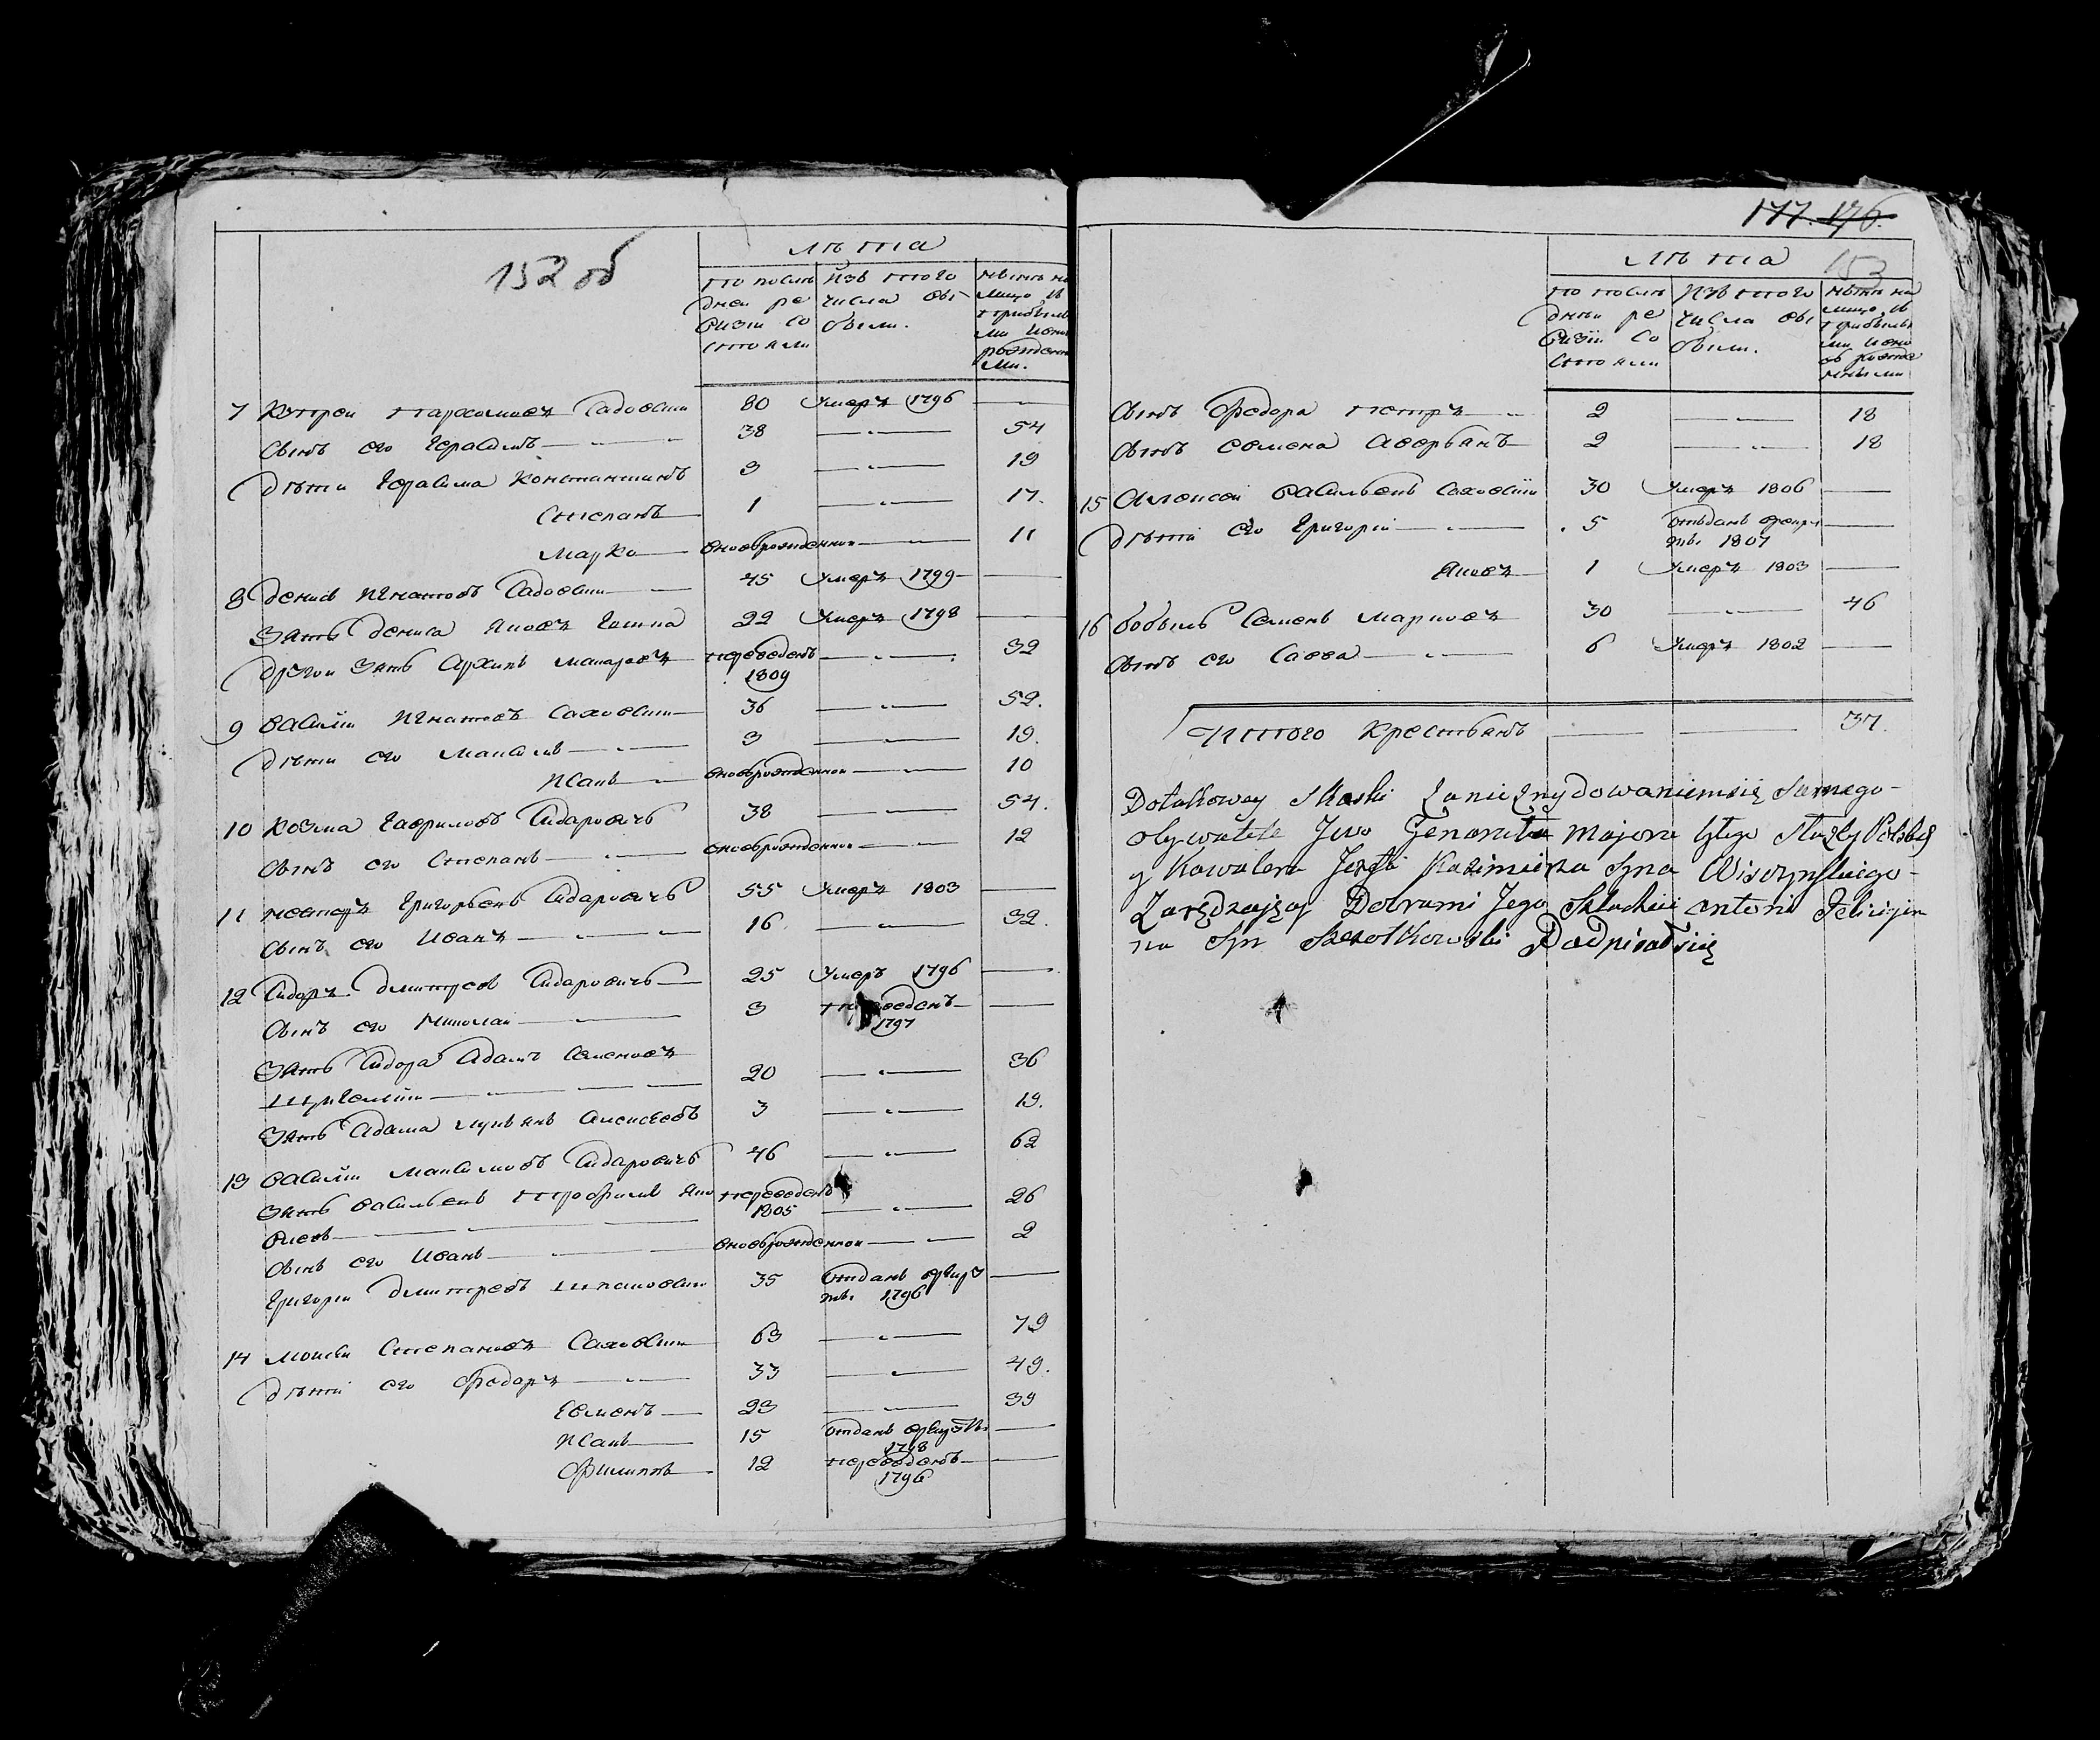 152 об
Лѣта
по послѣ дней ре визіи со стояли
изъ того числа вы были.
нынѣ на лицо, и прибылы ми и ново рожденны ми.
7 Кондрей Пархимовъ Садовски 80 Умеръ 1796 —
Сынъ его Герасимъ 38 — 54
Дѣти Герасима Константинъ 3 — 19
Степанъ 1 — 17.
Марко вновьрожденной — 11
8 Денисъ Игнатовъ Садовски 45 Умеръ 1799 —
Зять Дениса Яковъ 22 Умеръ 1798 —
Другои зять Архипъ Макаровъ переведенъ 1809 — 32
9 Василіи Игнатовъ Саховски 36 — 52.
Дѣти его Максимъ 3 — 19.
Исакъ вновьрожденнои — 10
10 Козма Гавриловъ Сидаровичъ 38 — 54.
Сынъ его Степанъ вновьрожденнои — 12
11 Несторъ Григорьевъ Сидаровичъ 55 Умеръ 1803 —
Сынъ его Иванъ 16 — 32.
12 Сидоръ Дмитревъ Сидаровичъ 25 Умеръ 1796 —
Сынъ его Николаи 3 переведенъ 1797 —
Зять Сидора Адамъ Семеновъ
20 — 36
Зять Адама Лукьянъ Алексѣевъ 3 — 19.
13 Василіи Максимовъ Сидаровичъ 46 — 62
Зять Васильевъ Трофимъ Яко переведенъ 1805 — 26
влевъ
Сынъ его Иванъ вновьрожденнои — 2
Григореи Дмитревъ 35 отданъ врекру ты 1796 —
14 Моисѣи Степановъ Саховски 63 — 79
Дѣти его Федоръ 33 — 49.
Евменъ 23 — 39
Исакъ 15 отданъ врекруты 1798 —
Филипъ 12 переведенъ 1796 —
177. 176.
153
Лѣта
по послѣ дней ре визіи со стояли
изъ того числа вы были.
нынѣ на лицо, и прибылы ми и ново рожде нными
Сынъ Федора Петръ 2 — 18
Сынъ Евмена Аверьянъ 2 — 18
15 Алексеи Васильевъ Саховскіи 30 Умеръ 1806 —
Дѣти его Григореи 5 отъданъ врекру ты 1807 —
Яковъ 1 Умеръ 1803 —
16 Бобыль Семенъ Марковъ 30 — 46
Сынъ его Савва 6 Умеръ 1802 —
Итого Крестьянъ — 37.
Dotakowey Skaski zanieznydowaniemsię Samego
obywatela Jwo Generała Majora byłego Służby Polskiey
y Kawalera Józefa Kazimierza Syna Wiszczyńskiego
Zarządzaiący Dobrami Jego Szlachcic Antoni Felicyia
na Syn Szczotkowski Podpisał się